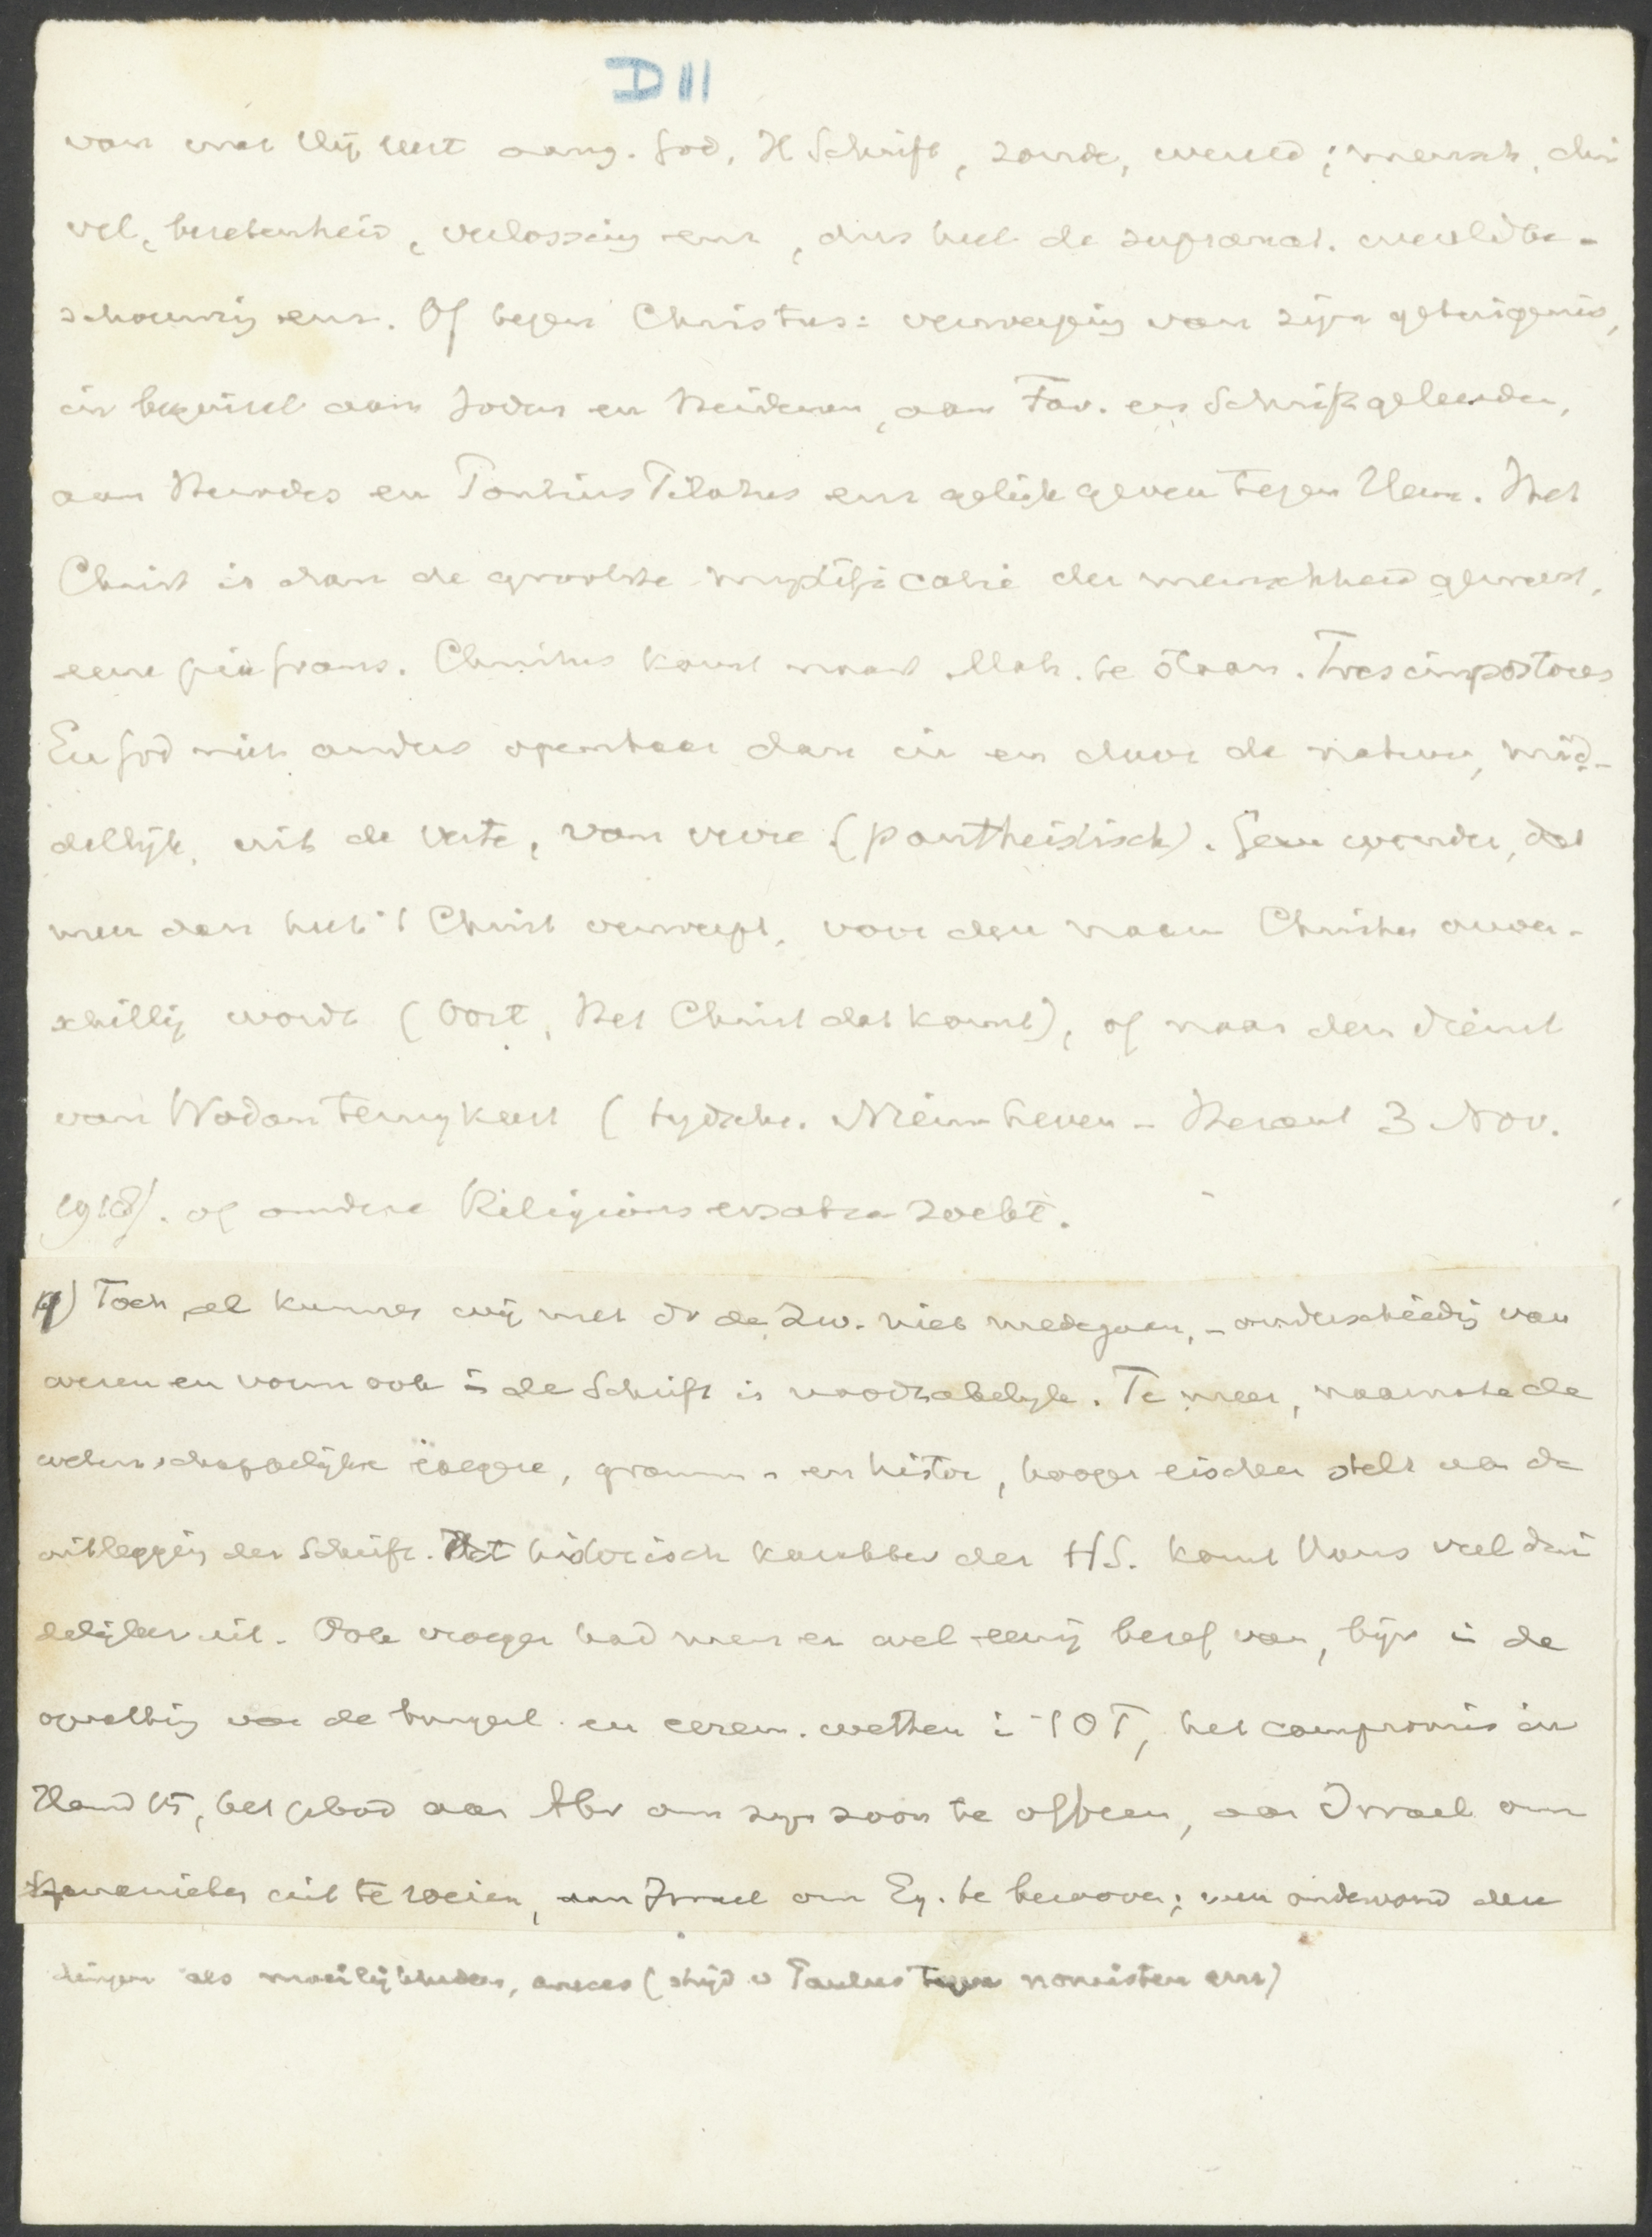 D III
van wat Hij leert aang. God, H Schrift, zonde, wereld, mensch, dui
vel, bezetenheid, verlossing enz, dus heel de supranat. wereldbe-
schouwing enz. Of tegen Christus: verwerping van zijn getuigenis,
in beginsel aan Joden en Heidenen, aan Far. en Schriftgeleerden,
aan Herodes en Pontius Pilatus enz gelijk geven tegen Hem. Het
Christ is dan de grootste mystificatie der menschheid geweest,
eene pia fraus. Christus komt naast Moh. te staan. Tres impostores
En God niet anders openbaar dan in en door de natuur, mid-
dellijk, uit de verte, van verre (pantheistisch). Geen wonder, dat
men dan heel 't Christ verwerpt, voor den naam Christen onver-
schillig wordt (Oort, Het Christ dat komt), of naar den dienst
van Wodan terugkeert (tijdschr. Nieuw Leven - Heraut 3 Nov.
1918). of andere Religionsersatze zoekt.
Toch al kunnen wij met dr de Zw. niet medegaan, - onderscheidig van
wezen en vorm ook in de Schrift is noodzakelijk. Te meer, naarmate de
wetenschappelijke exegese, gramm. en histor, hooger eischen stelt van de
uitlegging der Schrift. Het historisch karakter der HS. komt voor ons veel dui
delijker uit. Ook vroeger had men er wel eenig besef van, bijv in de
opvatting van de burgerl. en cerem. wetten i 't OT, het compromis in
Hand 15, het gebod aan Abr om zijn zoon te offeren, aan Israel om
Kanaanieten uit te roeien, aan Israel om Eg. te berooven; men ondervond deze
dingen als moeilijkheden, cruces (strijd v Paulus tegen nomisten enz)